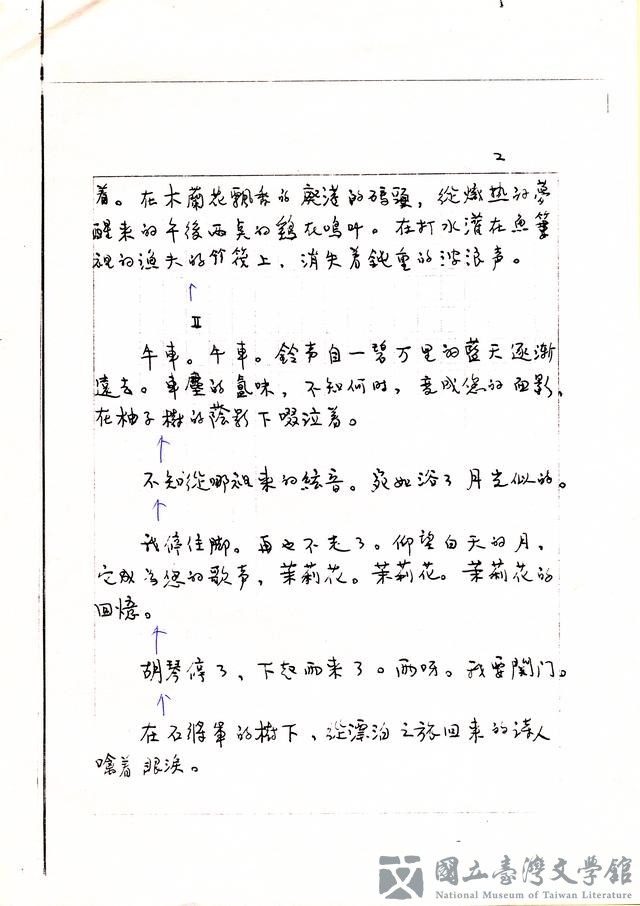 2
着。在木蘭花飄香的廢港的碼頭，從熾热的夢
醒来的午後两点的鷄在鳴叫。在打水灌在魚簍
裡的漁夫的竹筏上，消失着鈍重的波浪声。
II
牛車。牛車。鈴声自一碧万里的藍天逐漸
遠去。車塵的氣味，不知何時，变成您的面影，
在柚子樹的蔭影下啜泣着。
不知從哪裡来的絃音。宛如浴了月光似的。
我停住脚。再也不走了。仰望白天的月，
它成為您的歌声，茉莉花。茉莉花。茉莉花的
回憶。
胡琴停了，下起雨来了。雨呀。我要関门。
在石將軍的樹下，從漂泊之旅回来的诗人
噙着眼淚。
國立臺灣文學館
National Museum of Taiwan Literature